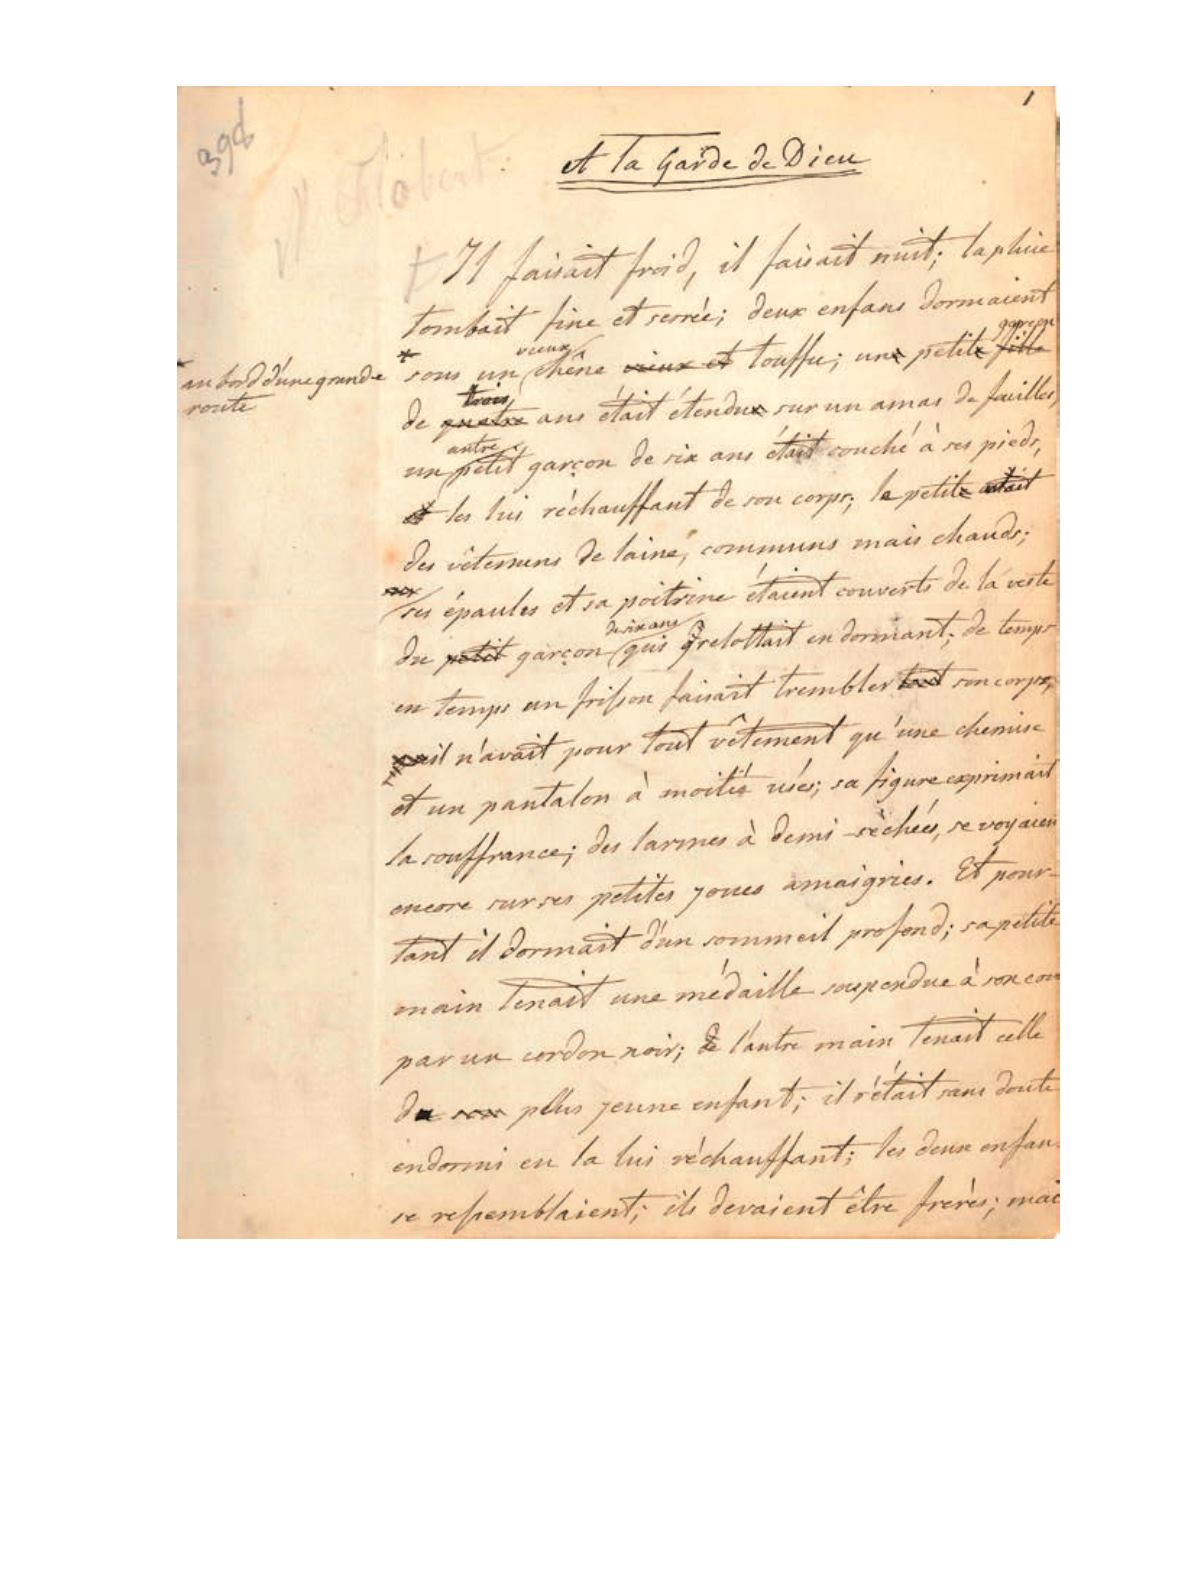 1
39d
A la Garde de Dieu
Il faisait froid, il faisait nuit; la pluie
tombait fine et serrée; deux enfans dormaient
garçon
vieux
* sous un chêne vieux et touffu; une petite fille
* au bord d'une grande
route
trois
de quatre ans était étendue sur un amas de feuilles,
autre
un petit garçon de six ans était couché à ses pieds,
et les lui réchauffant de son corps; le petite avait
des vêtemens de laine, communs mais chauds;
ses épaules et sa poitrine étaient couverts de la veste
de six ans
du petit garçon qui grelottait en dormant; de temps
en temps un frisson faisait trembler tout son corps,
il n'avait pour tout vêtement qu'une chemise
et un pantalon à moitié usés; sa figure exprimait
la souffrance; des larmes à demi-séchées, se voyaien
encore sur ses petites joues amaigries. Et pour-
tant il dormait d'un sommeil profond; sa petite
main tenait une médaille suspendue à son cou
par un cordon noir; de l'autre main tenait celle
du son plus jeune enfant; il s'était sans doute
endormi en la lui réchauffant; les deux enfan
se ressemblaient; ils devaient être frères; mai